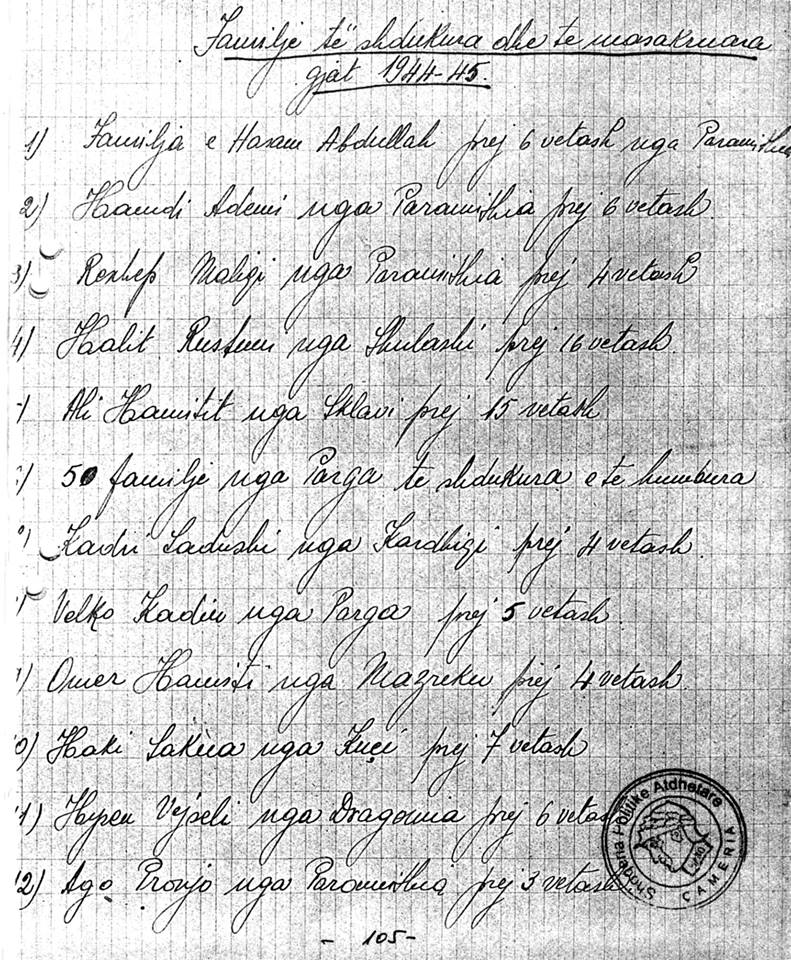 Familje të shdukura dhe te masakruara
gjat 1944-45.
1) Familja e Hasam Abdullah prej 6 vetash nga Paramithia
2) Hamdi Ademi nga Paramithia prej 6 vetash
3) Rexhep Maliqi nga Paramithia prej 4 vetash
4) Halit Rustemi nga prej 16 vetash
Ali Hamitit nga Sklavi prej 15 vetash
50 familje nga Parga te shdukura e te humbura
Kadri Sadushi nga Kardhiqi prej 4 vetash
Velko Kadiu nga Parga prej 5 vetash
Omer Hamiti nga Mazreku prej 4 vetash
0) Haki nga Kuçi prej 7 vetash
1) Hysen Vejseli nga Dragomia prej 6 vetash
2) Ago Pronjo nga Paramithia prej 3 vetash
Shoqeria Politike Atdhetare
CAMERIA
- 105-